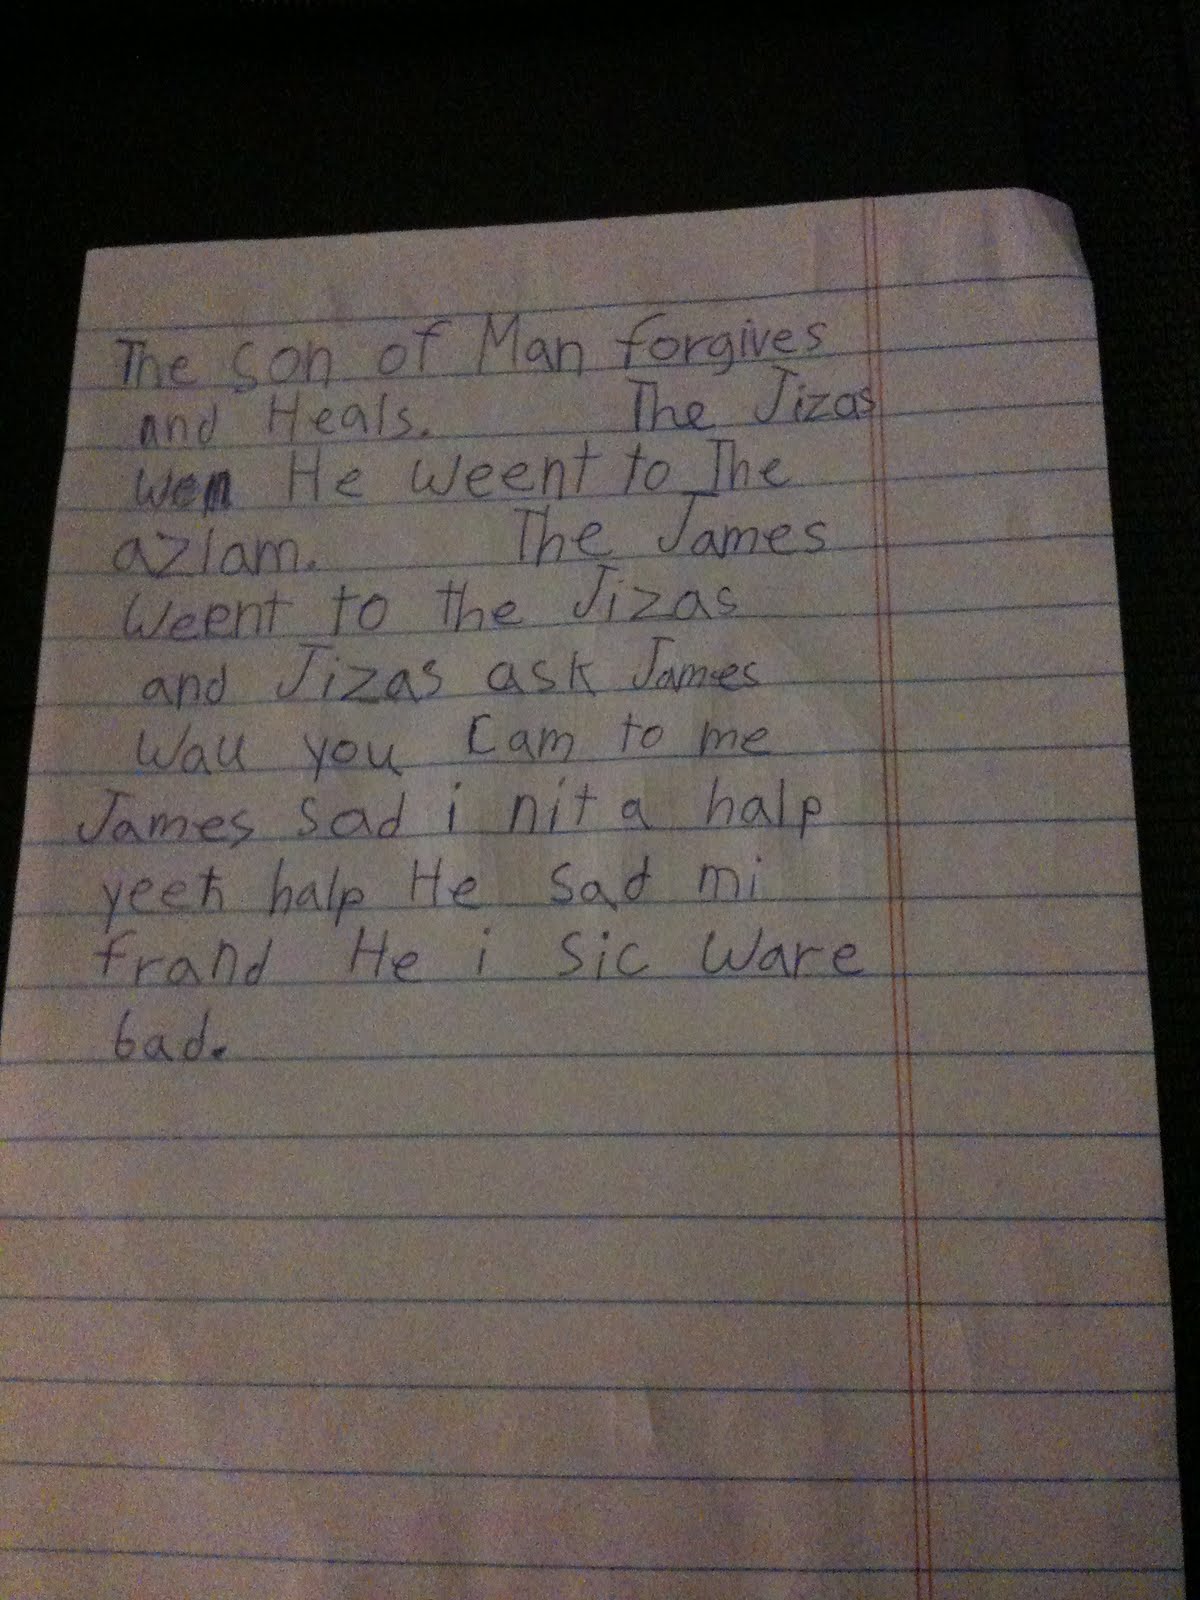 The son of Man forgives
and Heals. The Jizas
wen He weent to The
azlam. The James
Weent to the Jizas
and Jizas ask James
Wau you Cam to me
James sad i nit a halp
yeeh halp He sad mi
frand He i sic ware
bad.